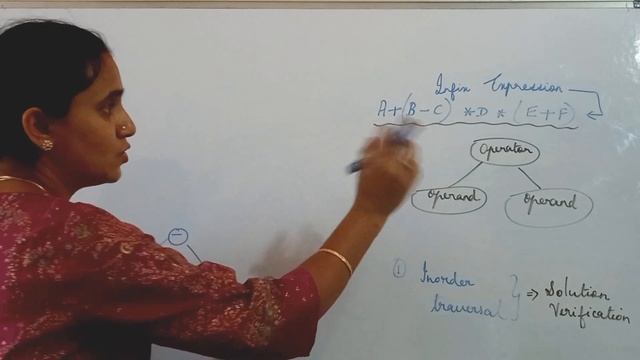 Infix Expression
A+(B-C) *D * (E+F)
Operator
operand
operand
-
① Inorder
traversal
⇒ Solution
Verification